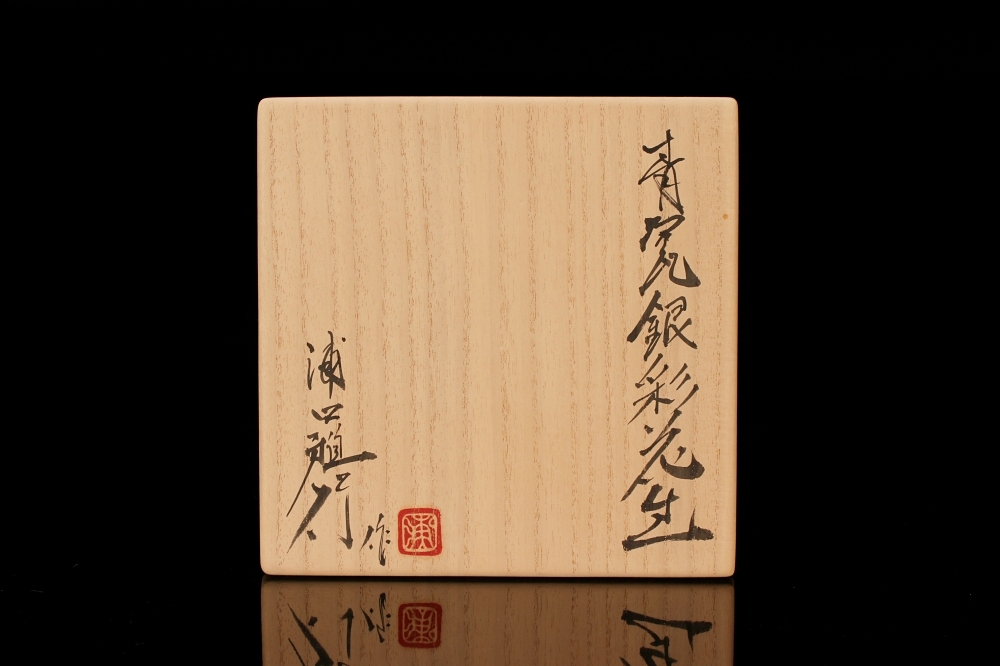 青瓷銀彩花生
浦口雅行
作
浦